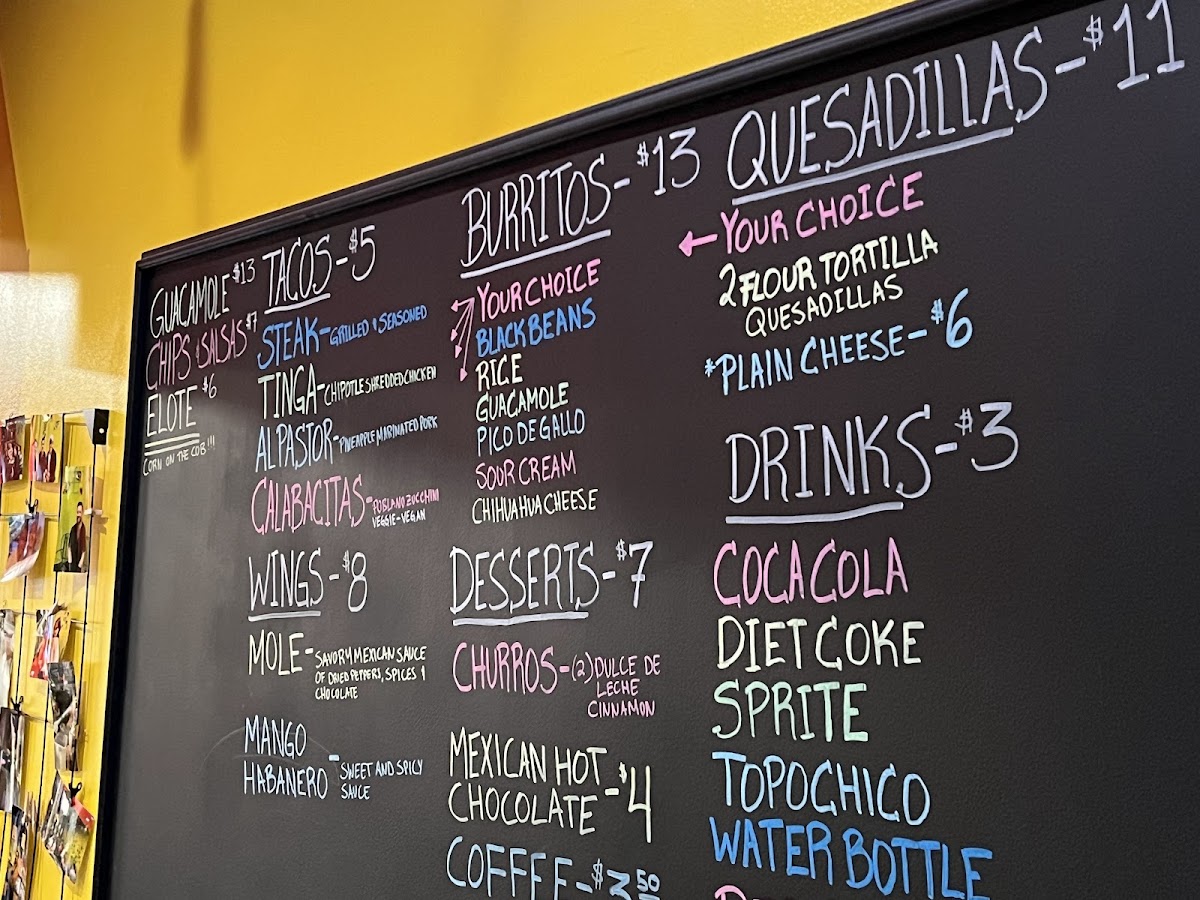 GUACAMOLE $13
CHIPS & SALSAS $7
ELOTE $6
CORN ON THE COB!!!
TACOS - $5
STEAK - GRILLED & SEASONED
TINGA - CHIPOTLE SHREDDED CHICKEN
AL PASTOR - PINEAPPLE MARINATED PORK
CALABACITAS - POBLANO ZUCCHINI
VEGGIE-VEGAN
WINGS - $8
MOLE - SAVORY MEXICAN SAUCE
OF DRIED PEPPERS, SPICES &
CHOCOLATE
MANGO
HABANERO - SWEET AND SPICY
SAUCE
BURRITOS - $13
YOUR CHOICE
BLACK BEANS
RICE
GUACAMOLE
PICO DE GALLO
SOUR CREAM
CHIHUAHUA CHEESE
DESSERTS - $7
CHURROS - (2) DULCE DE
LECHE
CINNAMON
MEXICAN HOT
CHOCOLATE - $4
COFFEE - $3.50
QUESADILLAS - $11
YOUR CHOICE
2 FLOUR TORTILLA
QUESADILLAS
*PLAIN CHEESE - $6
DRINKS - $3
COCA COLA
DIET COKE
SPRITE
TOPOCHICO
WATER BOTTLE